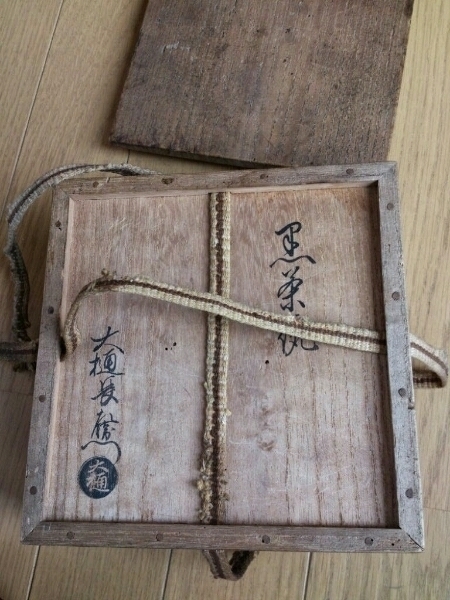 黒茶碗
大樋長左衛門
大樋